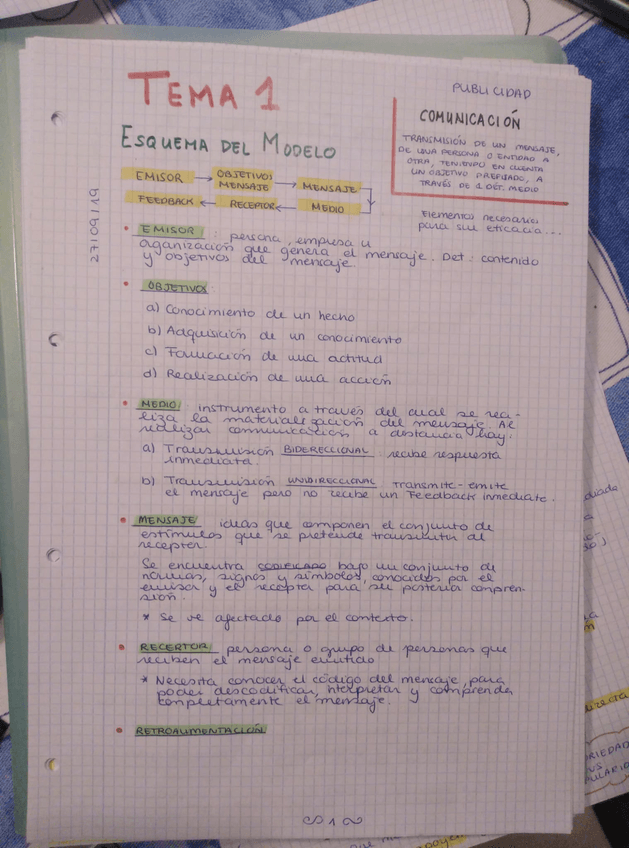 TEMA 1
PUBLICIDAD
COMUNICACIÓN
TRANSMISIÓN DE UN MENSAJE,
DE UNA PERSONA O ENTIDAD A
OTRA, TENIENDO EN CUENTA
UN OBJETIVO PREFIJADO, A
TRAVÉS DE 1 DET. MEDIO
ESQUEMA DEL MODELO
EMISOR → OBJETIVOS MENSAJE → MENSAJE
FEEDBACK ← RECEPTOR ← MEDIO
27/09/19
Elementos necesarios
para su eficacia...
• EMISOR: persona, empresa u
organización que genera el mensaje. Det.: contenido
y objetivos del mensaje.
• OBJETIVOS
a) Conocimiento de un hecho
b) Adquisición de un conocimiento
c) Formación de una actitud
d) Realización de una acción
• MEDIO: instrumento a través del cual se rea-
liza la materialización del mensaje. Al
realizar comunicación a distancia hay:
a) Transmisión BIDERECCIONAL: recibe respuesta
inmediata.
b) Transmisión UNIDIRECCIONAL: transmite-emite
el mensaje pero no recibe un Feedback inmediate.
• MENSAJE: ideas que componen el conjunto de
estímulos que se pretende transmitir al
receptor.
Se encuentra CODIFICADO bajo un conjunto de
normas, signos y símbolos, conocidos por el
emisor y el receptor para su posterior compren-
sión.
* Se ve afectado por el contexto.
• RECERTOR: persona o grupo de personas que
reciben el mensaje emitido
* Necesita conocer el código del mensaje, para
poder descodificar, interpretar y comprender
completamente el mensaje.
• RETROALIMENTACIÓN
1
directa